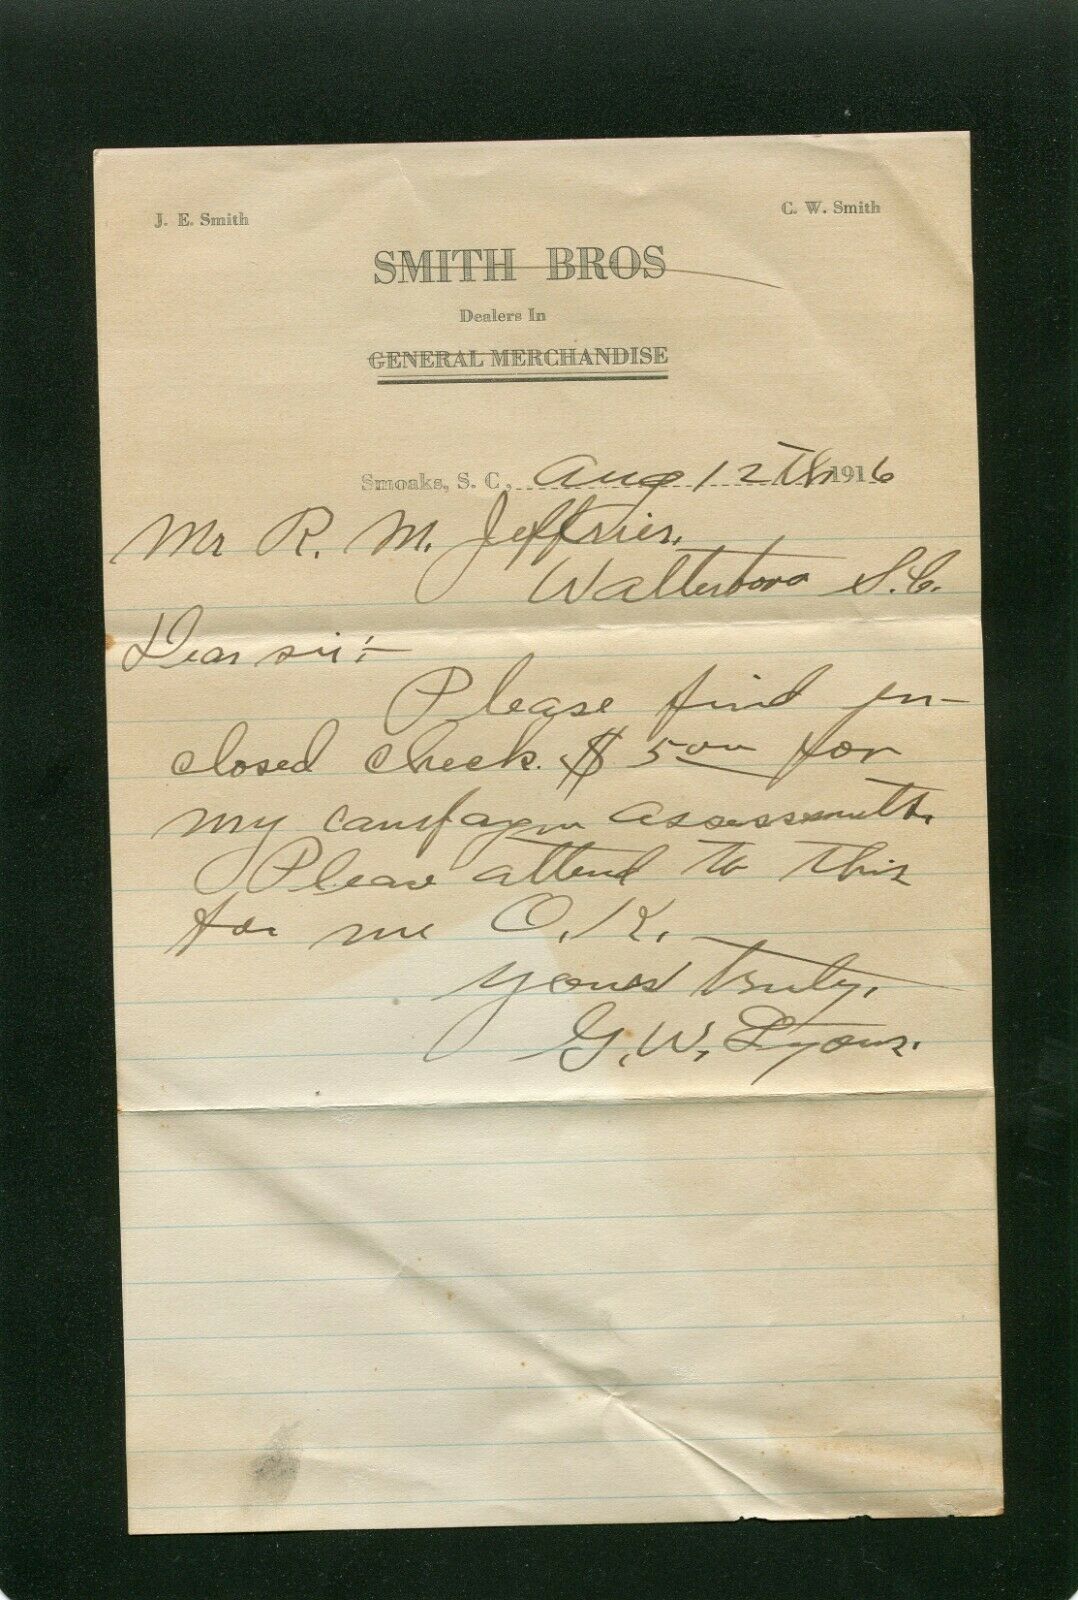 J. E. Smith
C. W. Smith
SMITH BROS
Dealers In
GENERAL MERCHANDISE
Smoaks, S. C., Aug 12th 1916
Mr R. M. Jeffries,
Walterboro S.C.
Dear sir:-
Please find en-
closed check $5 00 for
my campaign assessment.
Please attend to this
for me O.K.
Yours truly,
G. W. Lyons.